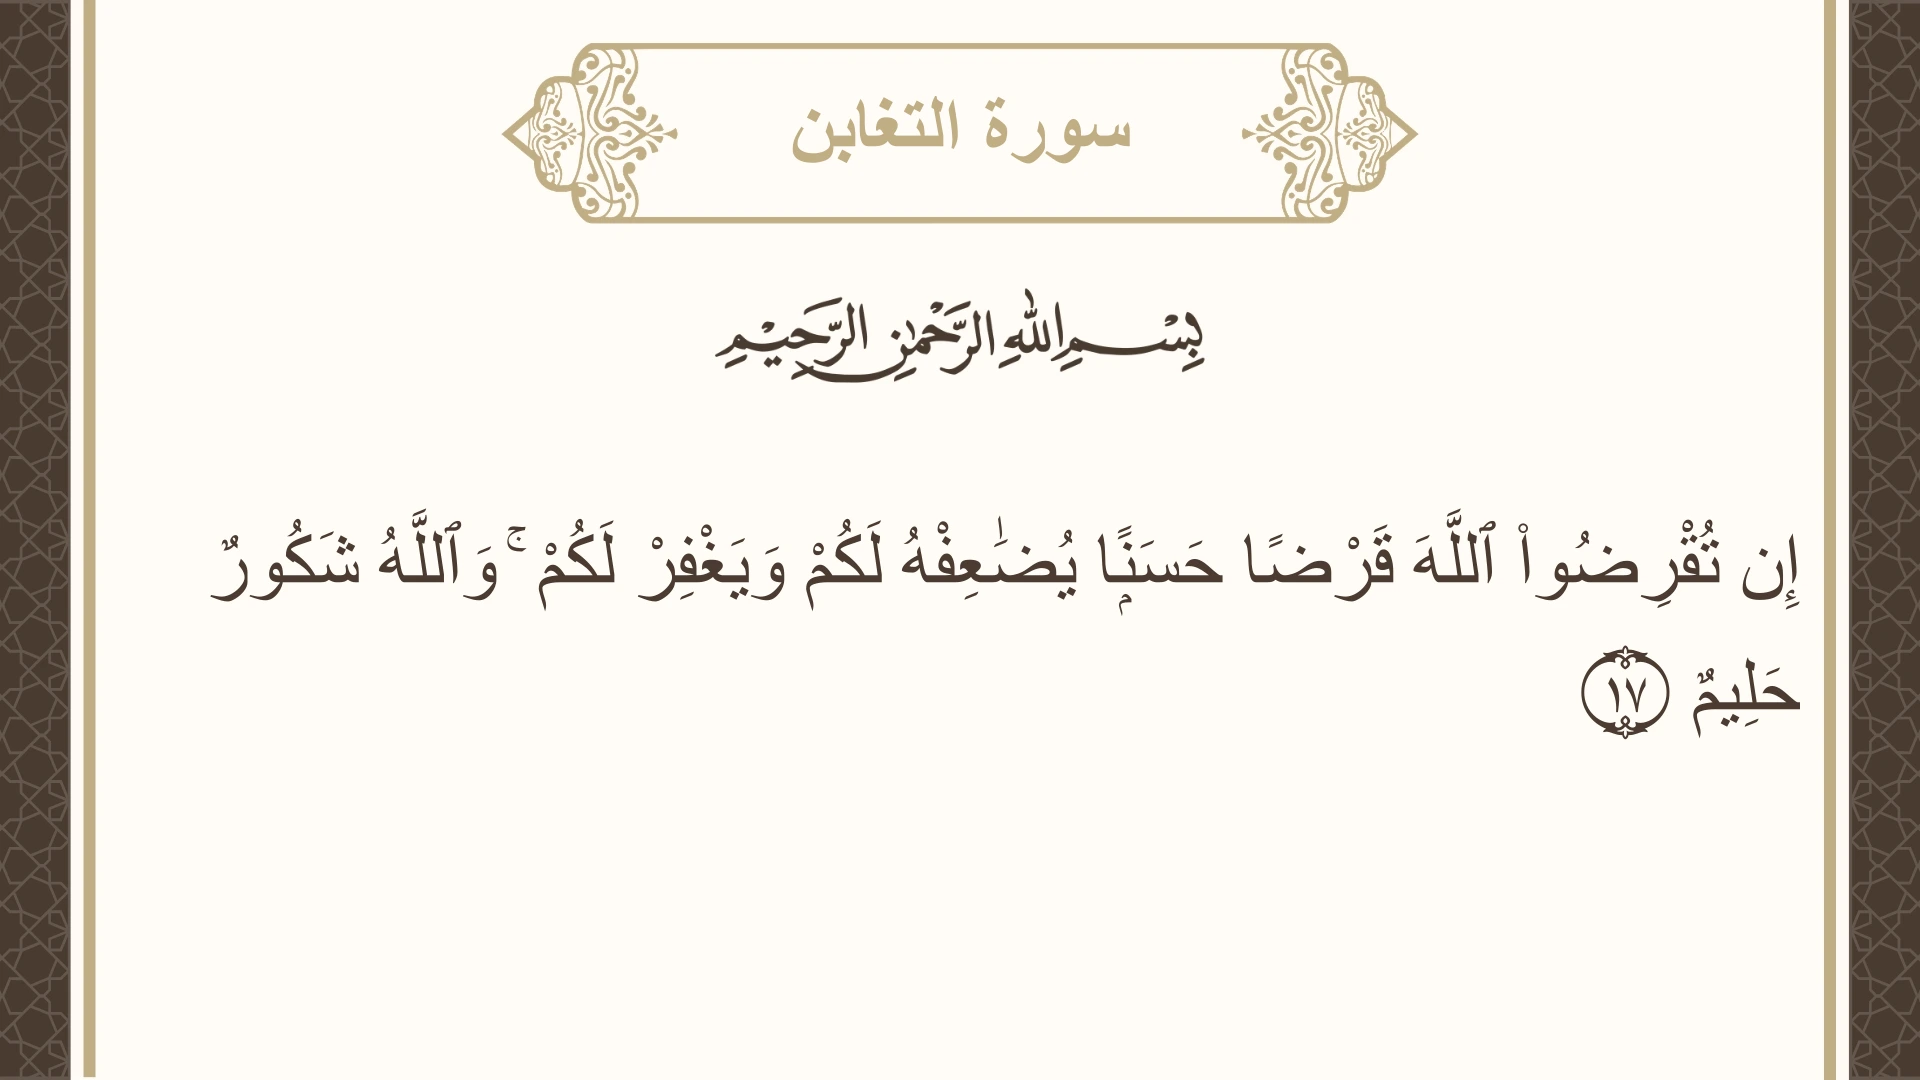 سورة التغابن
بِسْمِ اللهِ الرَّحْمٰنِ الرَّحِيْمِ
إِن تُقْرِضُوا۟ ٱللَّهَ قَرْضًا حَسَنًۭا يُضَـٰعِفْهُ لَكُمْ وَيَغْفِرْ لَكُمْ ۚ وَٱللَّهُ شَكُورٌ
حَلِيمٌ ١٧